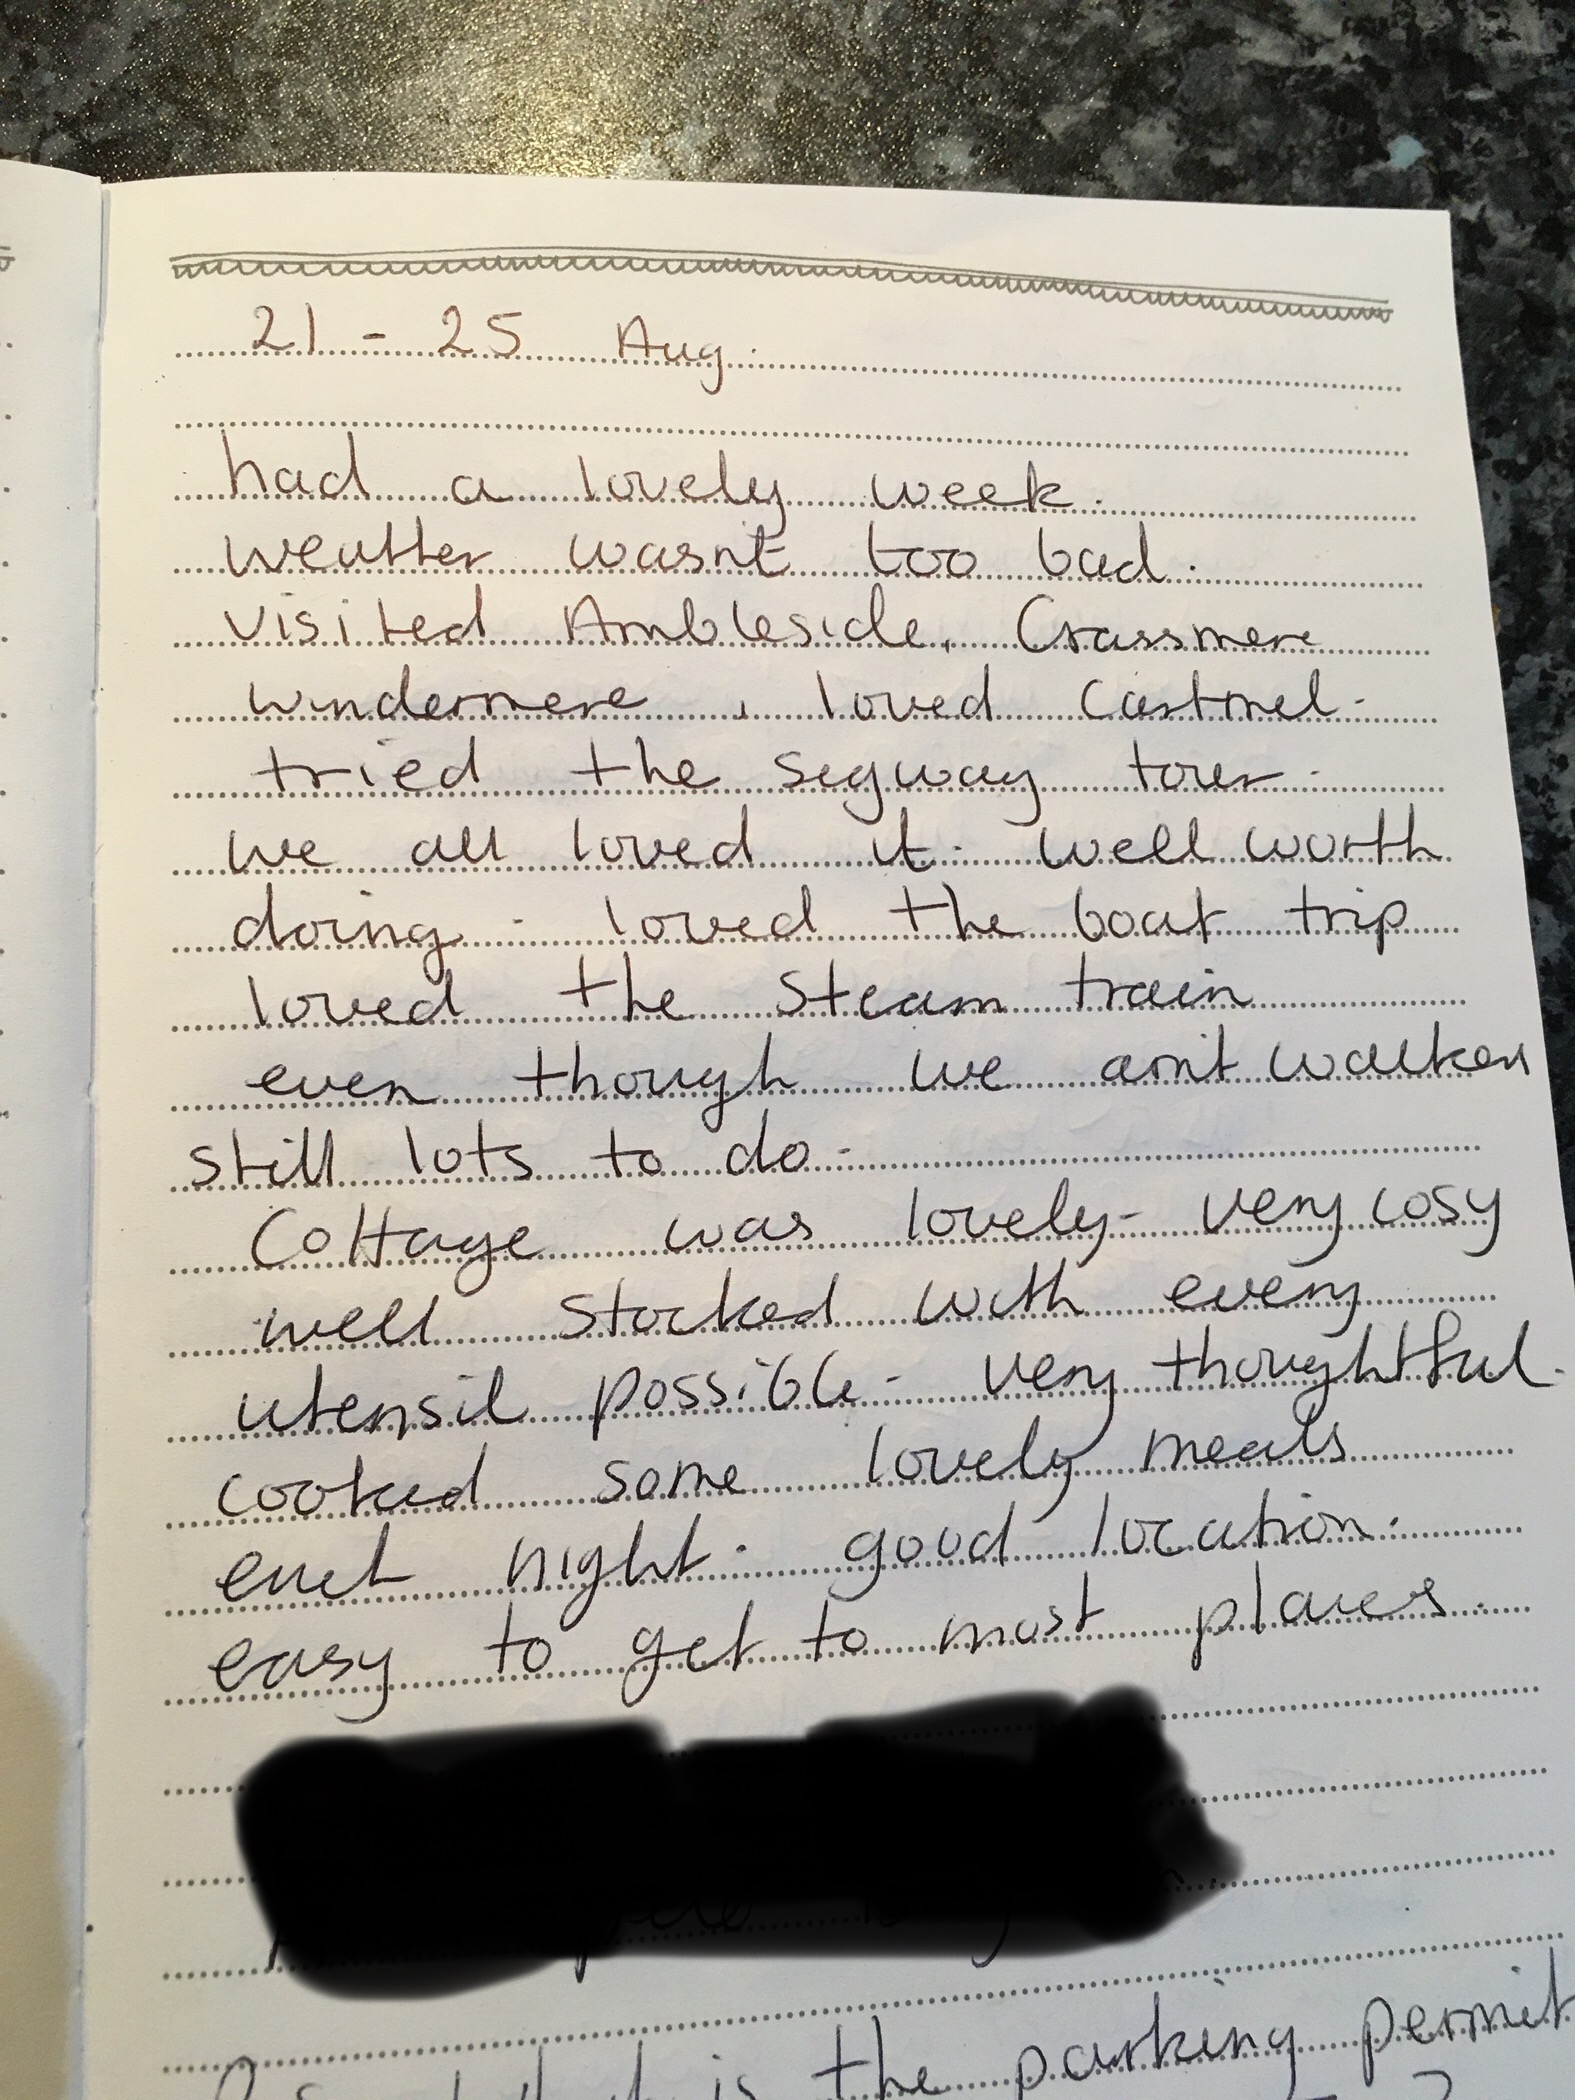 21 - 25 Aug.
had a lovely week.
weather wasn't too bad.
visited Ambleside, Grassmere
windermere, loved Cartmel.
tried the segway tour.
we all loved it. well worth
doing. loved the boat trip
loved the steam train
even though we arn't walkers
still lots to do.
Cottage was lovely - very cosy
well stocked with every
utensil possible - very thoughtful.
cooked some lovely meals
each night. good location.
easy to get to most places.
is the parking permit